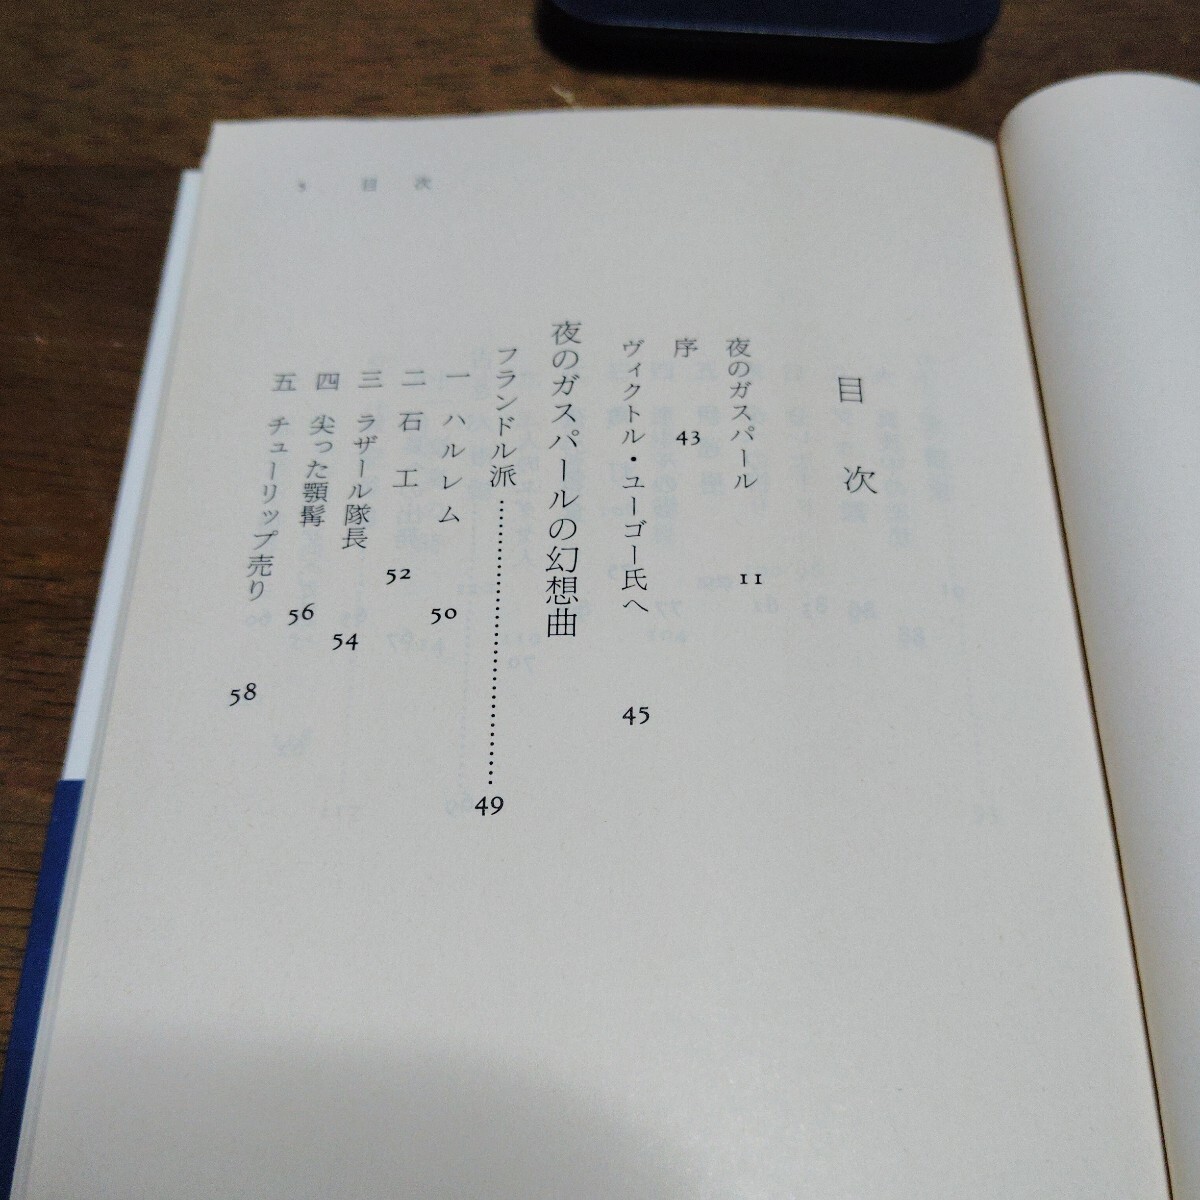 5 目次
目次
夜のガスパール 11
序 43
ヴィクトル・ユーゴー氏へ 45
夜のガスパールの幻想曲
フランドル派……………………………49
一 ハルレム 50
二 石工 52
三 ラザール隊長 54
四 尖った顎髯 56
五 チューリップ売り 58